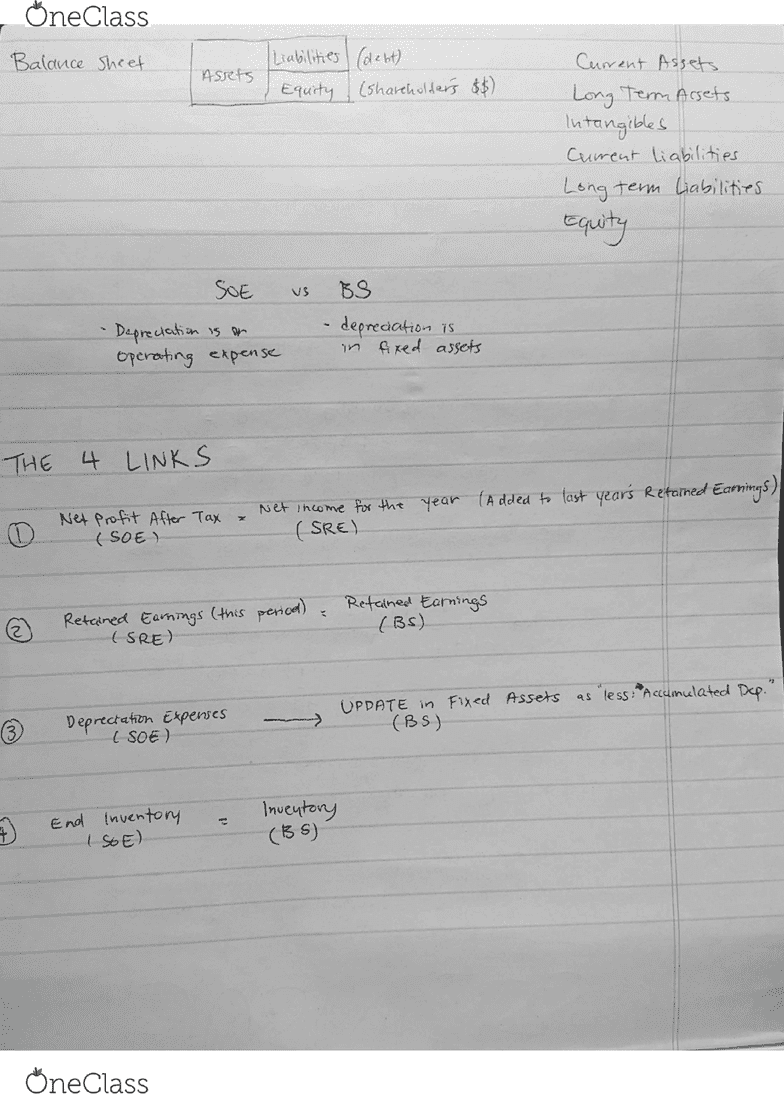 OneClass
Balance Sheet
Assets
Liabilities (debt)
Equity (shareholder's $$)
Current Assets
Long Term Assets
Intangibles
Current Liabilities
Long term Liabilities
Equity
SOE vs BS
- Depreciation is an
operating expense
- depreciation is
in fixed assets
THE 4 LINKS
① Net Profit After Tax = Net income for the year (Added to last year's Retained Earnings)
(SOE) (SRE)
② Retained Earnings (this period) = Retained Earnings
(SRE) (BS)
③ Depreciation Expenses → UPDATE in Fixed Assets as "less: Accumulated Dep."
(SOE) (BS)
④ End Inventory = Inventory
(SOE) (BS)
OneClass